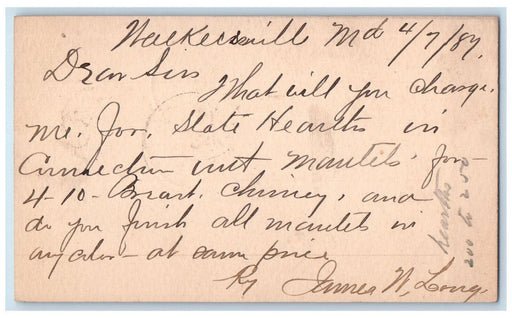 Walkersville Md 4/7/87.
Dear Sirs
What will you charge.
me. for. Slate Hearths in
Connection wit mantels for
4-10- Breast. Chimney, and
do you finish all mantels in
any color - at same price
Ry James W. Long
hearths
200 to 250